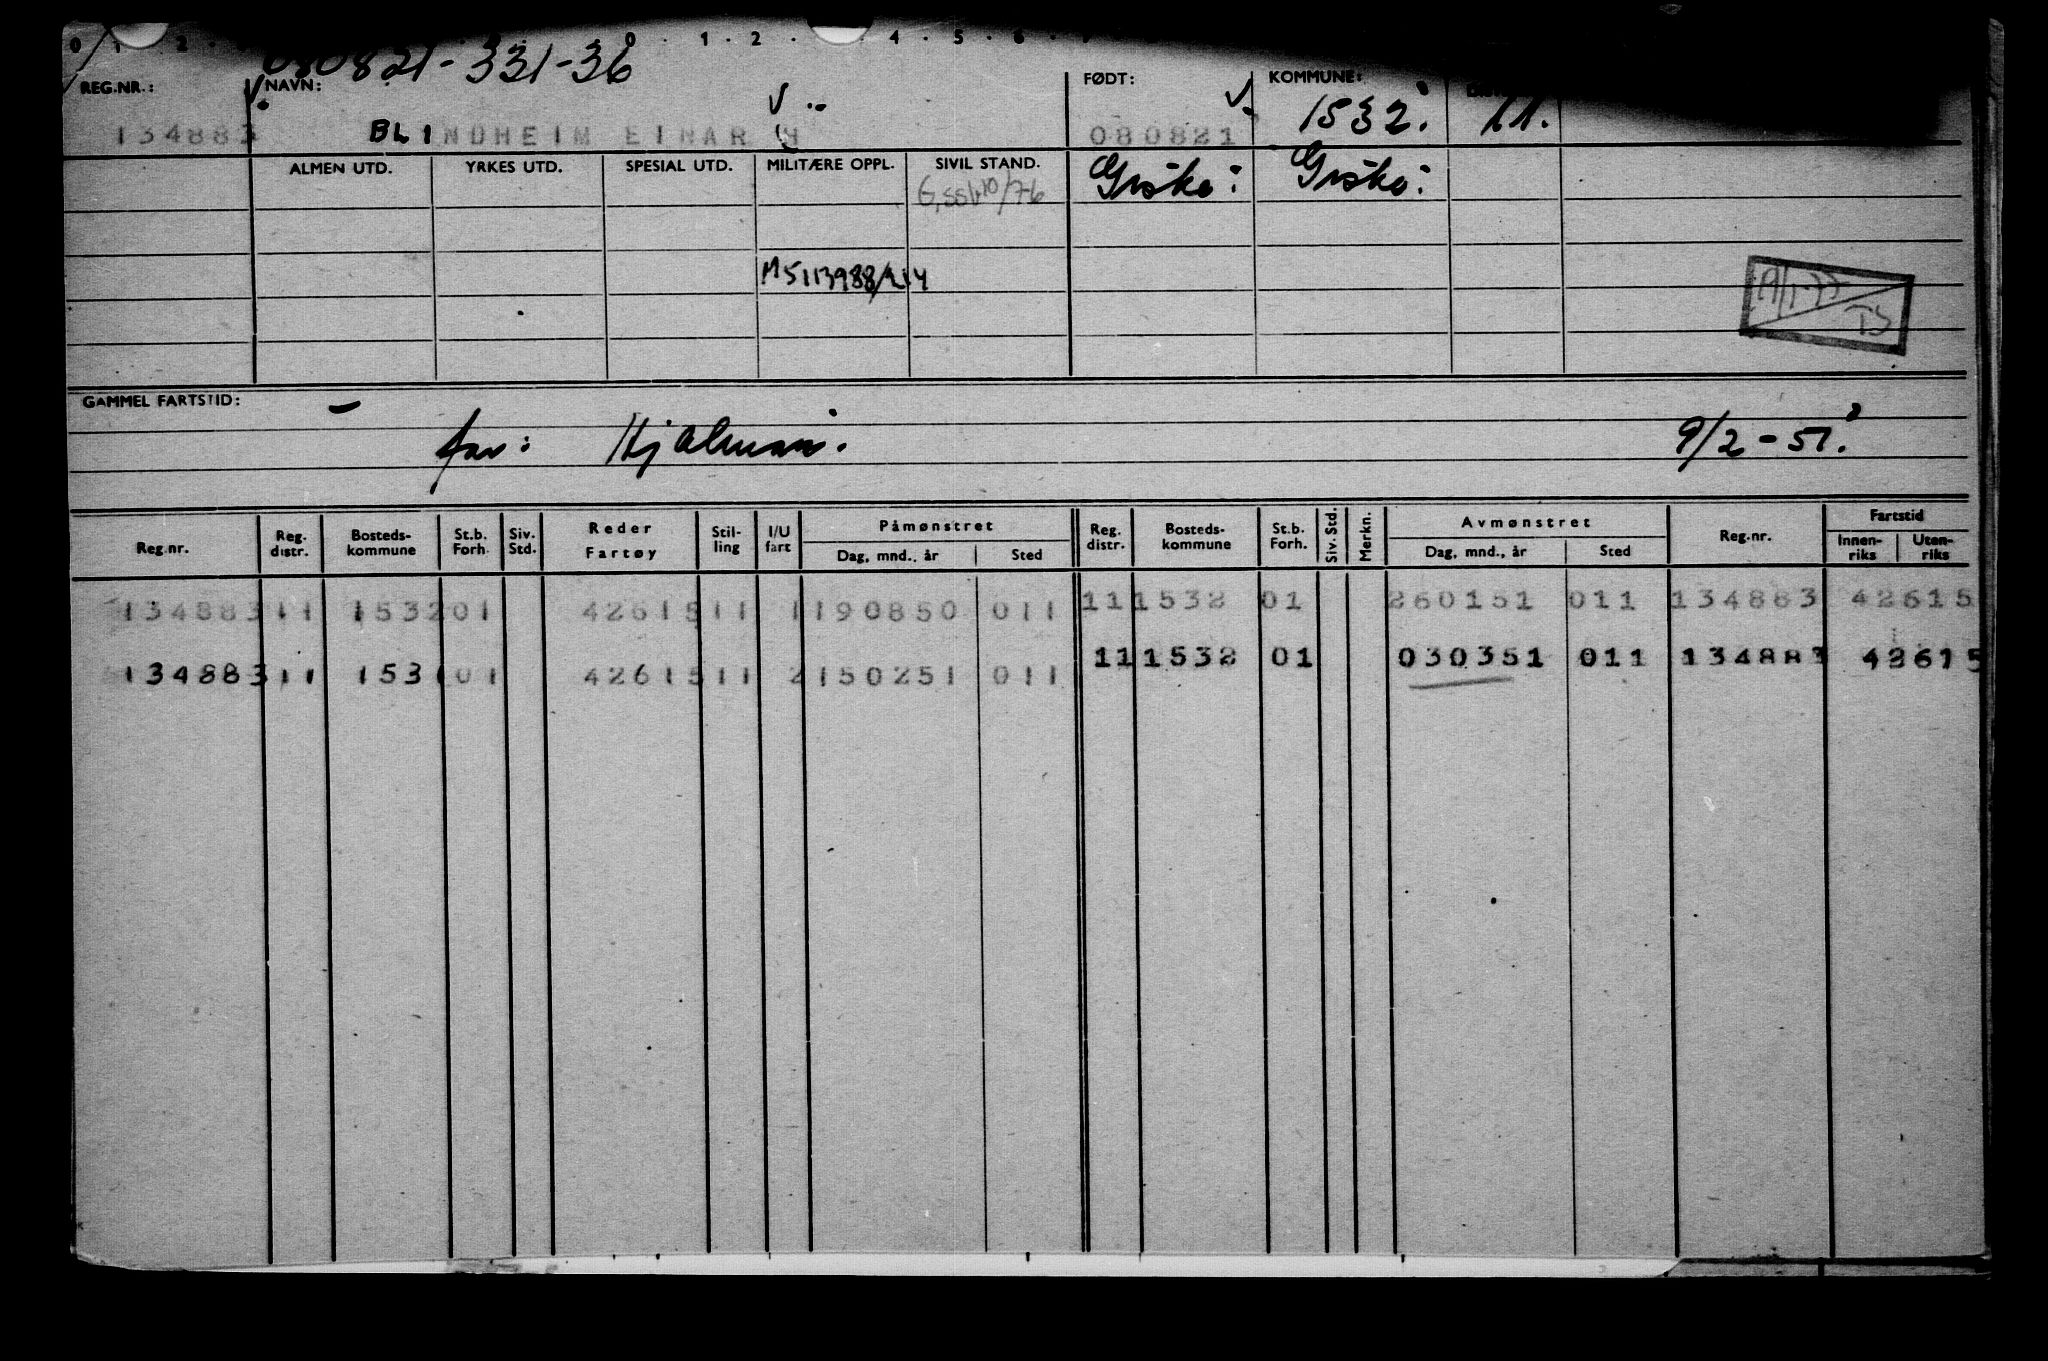 080821-331-36
REG.NR.: NAVN: FØDT: KOMMUNE:
134883 BLINDHEIM EINAR H 080821 1532. 11.
ALMEN UTD. YRKES UTD. SPESIAL UTD. MILITÆRE OPPL. SIVIL STAND. Giske: Giske:
M5113988/214
TS
GAMMEL FARTSTID: -
far: Hjalmar. 9/2-51.
Reg.nr. Reg. distr. Bosteds-kommune St.b. Forh. Siv. Std. Reder Fartøy Stil-ling I/U fart Påmønstret Dag, mnd., år Sted Reg. distr. Bosteds-kommune St.b. Forh. Siv. Std. Merkn. Avmønstret Dag, mnd., år Sted Reg.nr. Fartstid Innen-riks Uten-riks
134883 11 1532 01 42615 11 1 190850 011 11 1532 01 260151 011 134883 42615
134883 11 153 01 42615 11 2 150251 011 11 1532 01 030351 011 134883 42615